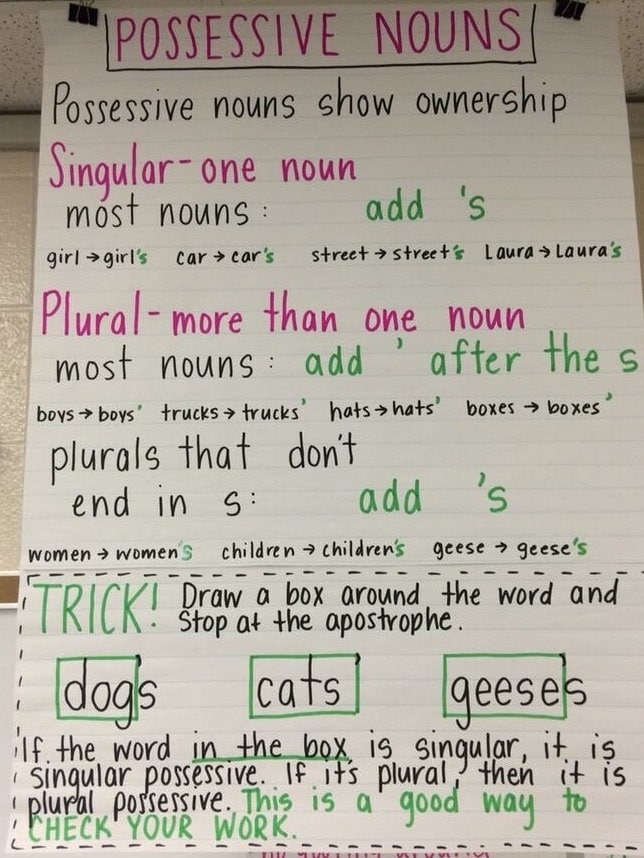 POSSESSIVE NOUNS
Possessive nouns show ownership
Singular- one noun
most nouns: add 's
girl → girl's car → car's street → street's Laura → Laura's
Plural - more than one noun
most nouns: add ' after the s
boys → boys' trucks → trucks' hats → hats' boxes → boxes'
plurals that don't
end in s: add 's
women → women's children → children's geese → geese's
TRICK! Draw a box around the word and
Stop at the apostrophe.
dog's cats' geese's
If the word in the box is singular, it is
singular possessive. If it's plural, then it is
plural possessive. This is a good way to
CHECK YOUR WORK.